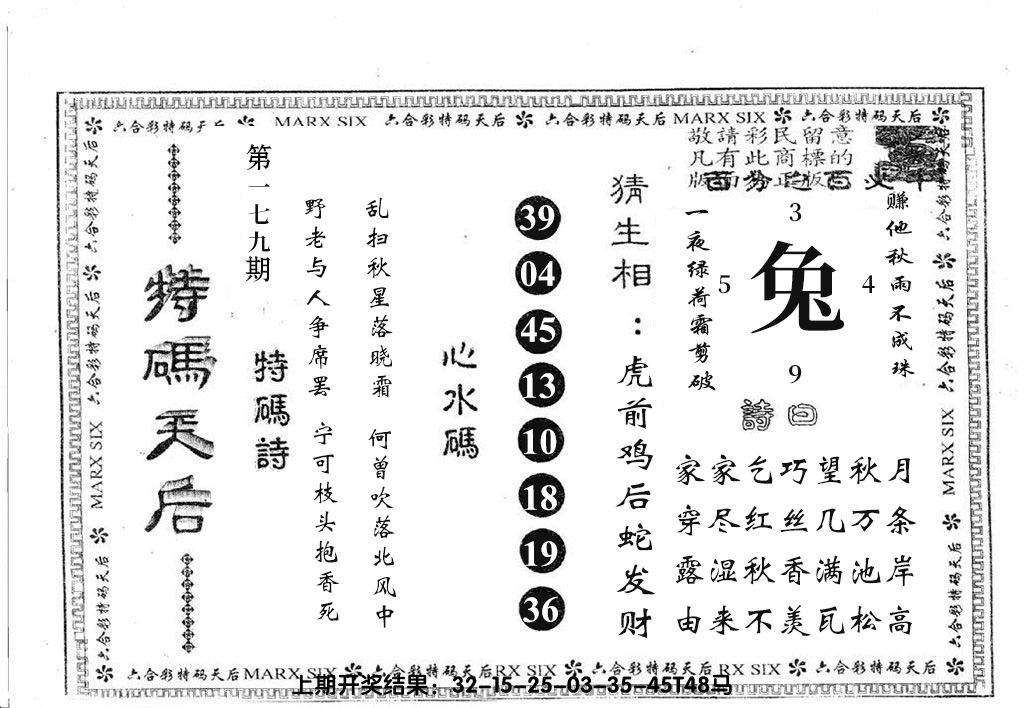 六合彩特码天后 MARX SIX 六合彩特码天后 六合彩特码天后 MARX SIX 六合彩特码天后
敬請彩民留意
凡有此商標的
版面为正版
特碼天后
第一七九期
特碼詩
野老与人争席罢 宁可枝头抱香死
乱扫秋星落晓霜 何曾吹落北风中
心水碼
39
04
45
13
10
18
19
36
猜生相：虎前鸡后蛇发财
一夜绿荷霜剪破
3
5
兔
4
9
赚他秋雨不成珠
詩曰
家家乞巧望秋月
穿尽红丝几万条
露湿秋香满池岸
由来不羡瓦松高
六合彩特码天后 MARX SIX 六合彩特码天后
六合彩特码天后 MARX SIX 六合彩特码天后
六合彩特码天后 MARX SIX 六合彩特码天后 RX SIX 六合彩特码天后 RX SIX 六合彩特码天后
上期开奖结果：32-15-25-03-35-45T48马